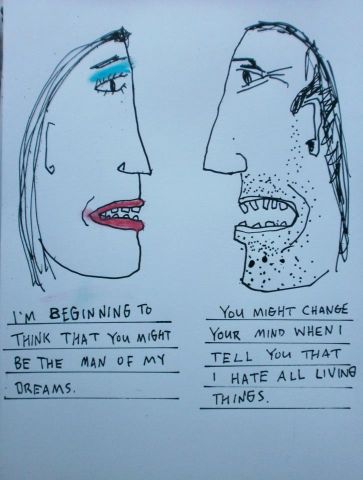 I'M BEGINNING TO
THINK THAT YOU MIGHT
BE THE MAN OF MY
DREAMS.
YOU MIGHT CHANGE
YOUR MIND WHEN I
TELL YOU THAT
I HATE ALL LIVING
THINGS.